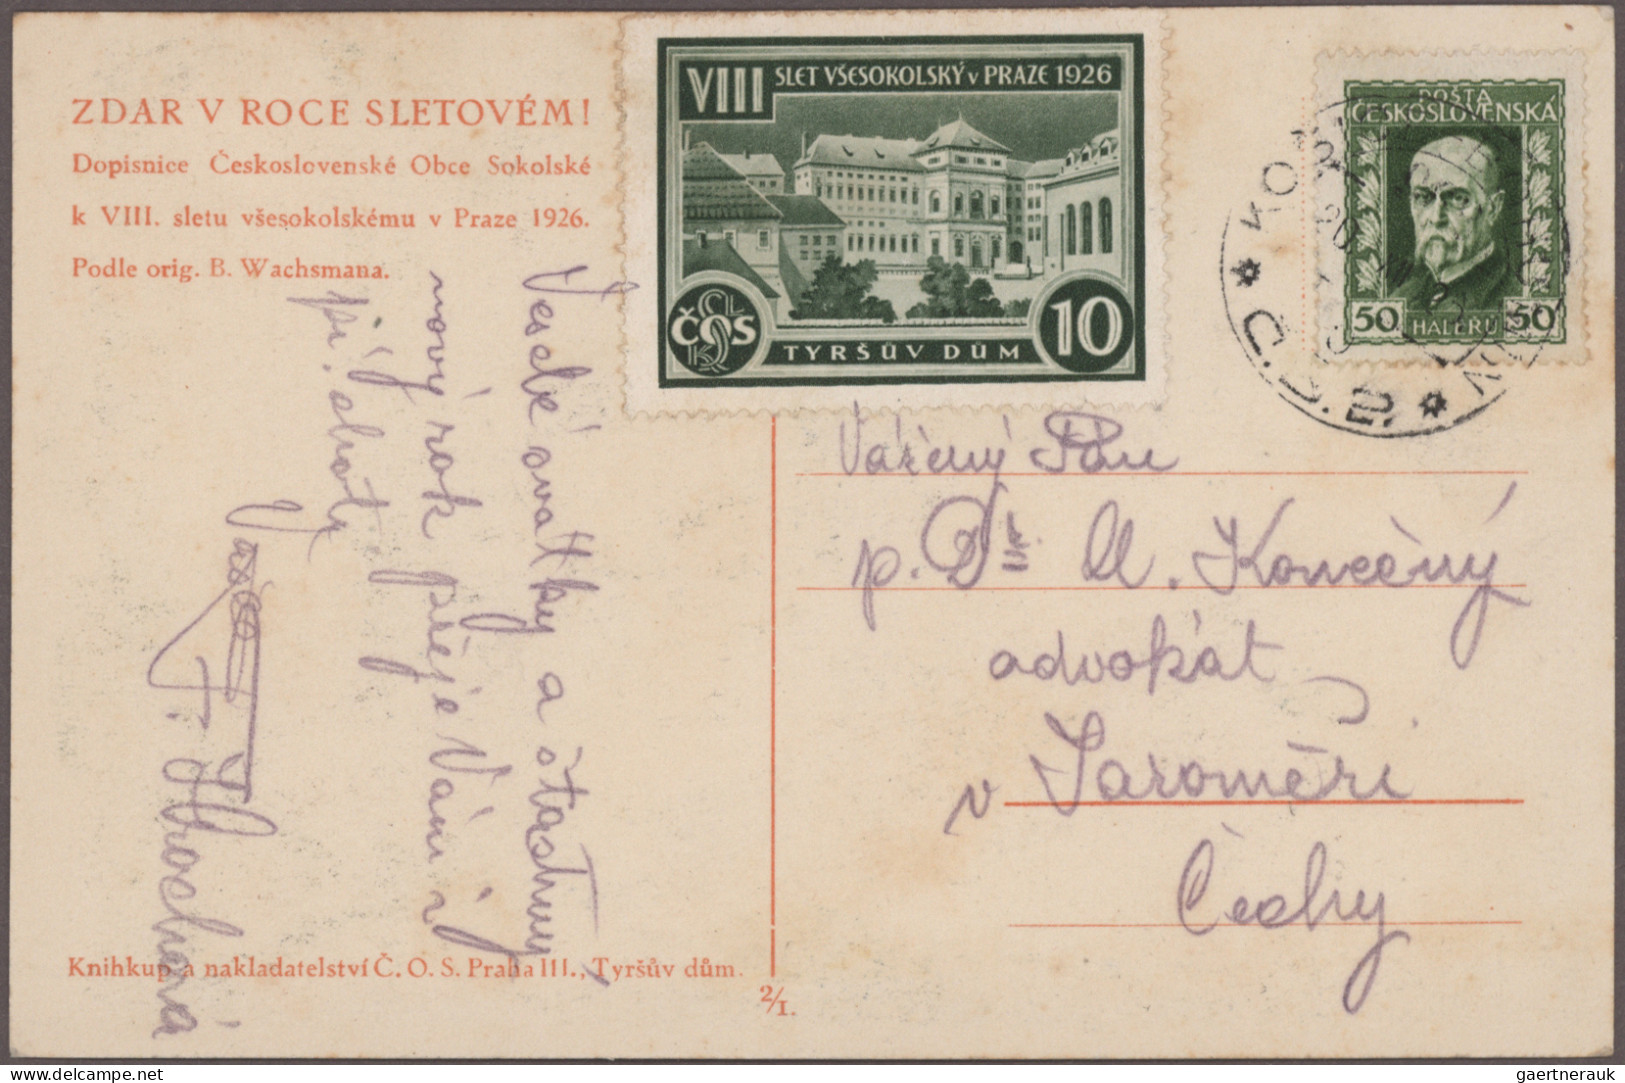 ZDAR V ROCE SLETOVÉM!
Dopisnice Československé Obce Sokolské
k VIII. sletu všesokolskému v Praze 1926.
Podle orig. B. Wachsmana.
VIII SLET VŠESOKOLSKÝ v PRAZE 1926
ČOS
TYRŠŮV DŮM 10
POŠTA
ČESKOSLOVENSKÁ
50 HALÉŘŮ 50
Veselé svátky a šťastný
nový rok přeje Vám i
př.
Vážený Pán
p. Dr. Konečný
advokát
v Jaroměři
Čechy
Knihkup. a nakladatelství Č. O. S. Praha III., Tyršův dům.
2/I.
gaertnerauk